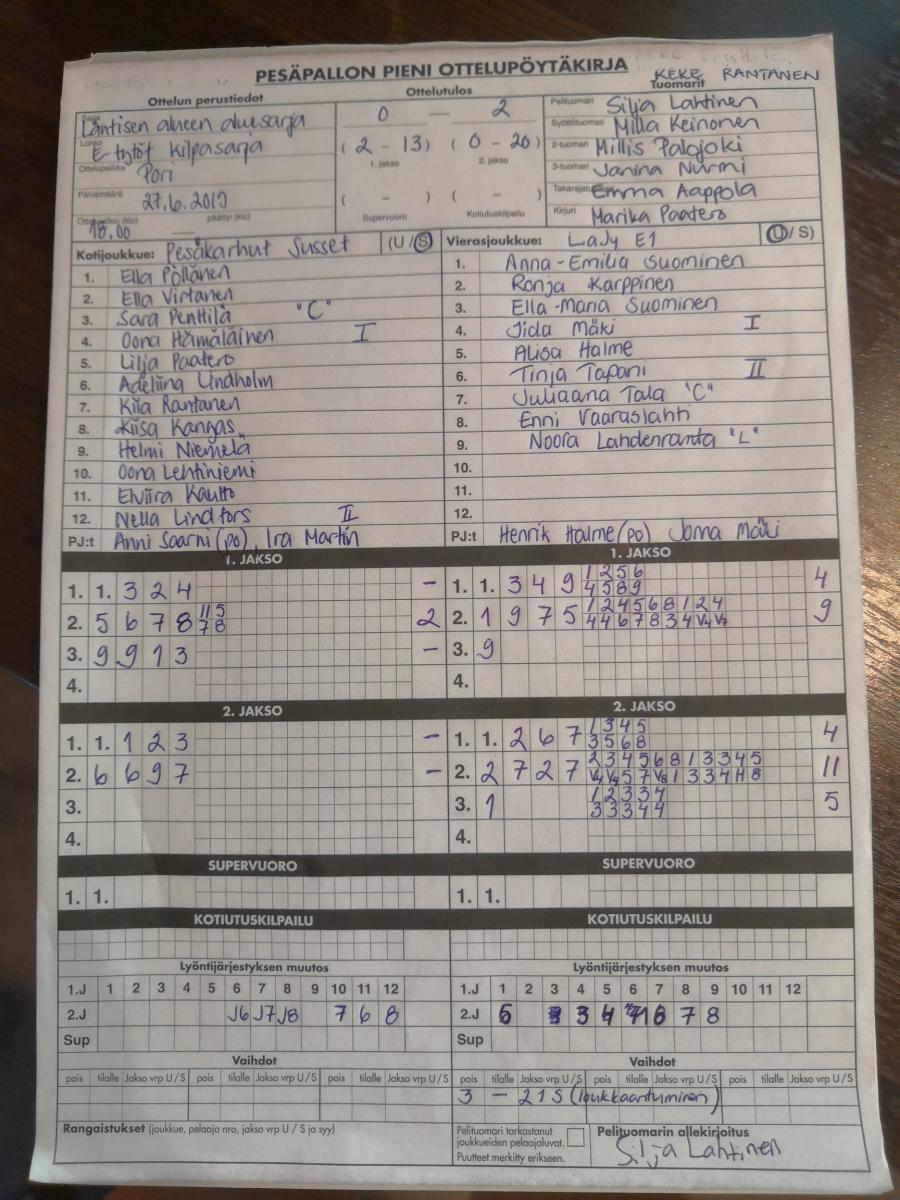 PESÄPALLON PIENI OTTELUPÖYTÄKIRJA
KEKE RANTANEN
Ottelun perustiedot
Ottelutulos
Tuomarit
Sarja Läntisen alueen aluesarja
Lohko E-tytöt kilpasarja
Ottelupaikka Pori
Päivämäärä 27.6.2019
18.00 — päättyi (klo)
0 — 2
(2 - 13) (0 - 20)
1. jakso 2. jakso
( - ) ( - )
Supervuoro Kotiutuskilpailu
Pelituomari Silja Lahtinen
Syöttötuomari Milla Keinonen
2-tuomari Millis Palojoki
3-tuomari Janina Nurmi
Takarajatuomari Emma Aappola
Kirjuri Marika Paatero
Kotijoukkue: Pesäkarhut Susset (U/S)
1. Ella Pöllänen
2. Ella Virtanen
3. Sara Penttilä "C"
4. Oona Hämäläinen I
5. Lilja Paatero
6. Adeliina Lindholm
7. Kiia Rantanen
8. Kiisa Kangas
9. Helmi Niemelä
10. Oona Lehtiniemi
11. Elviira Kautto
12. Nella Lindfors II
PJ:t Anni Saarni (po), Ira Martin
Vierasjoukkue: Lady E1 (U/S)
1. Anna-Emilia Suominen
2. Ronja Karppinen
3. Ella-Maria Suominen
4. Iida Mäki I
5. Alisa Halme
6. Tinja Tapani II
7. Juliaana Tala "C"
8. Enni Vaaraslahti
9. Noora Lahdenranta "L"
10.
11.
12.
PJ:t Henrik Halme (po) Joma Mäki
1. JAKSO
1. 1. 3 2 4 –
2. 5 6 7 8 11 5 2
7 8
3. 9 9 1 3 –
4.
1. JAKSO
1. 1. 3 4 9 1 2 5 6 4
4 5 8 9
2. 1 9 7 5 1 2 4 5 6 8 1 2 4 9
4 4 6 7 8 3 4 V4 V7
3. 9
4.
2. JAKSO
1. 1. 1 2 3 –
2. 6 6 9 7 –
3.
4.
2. JAKSO
1. 1. 2 6 7 1 3 4 5 4
3 5 6 8
2. 2 7 2 7 2 3 4 5 6 8 1 3 3 4 5 11
V4 V5 5 7 V8 1 3 3 4 H 8
3. 1 1 2 3 3 4 5
3 3 3 4 4
4.
SUPERVUORO
1. 1.
SUPERVUORO
1. 1.
KOTIUTUSKILPAILU
KOTIUTUSKILPAILU
Lyöntijärjestyksen muutos
1.J 1 2 3 4 5 6 7 8 9 10 11 12
2.J J6 J7 J8 7 6 8
Sup
Lyöntijärjestyksen muutos
1.J 1 2 3 4 5 6 7 8 9 10 11 12
2.J 5 3 4 6 7 8
Sup
Vaihdot
pois tilalle Jakso vrp U/S pois tilalle Jakso vrp U/S pois tilalle Jakso vrp U/S
Vaihdot
pois tilalle Jakso vrp U/S pois tilalle Jakso vrp U/S pois tilalle Jakso vrp U/S
3 – 2 1 S (loukkaantuminen)
Rangaistukset (joukkue, pelaaja nro, jakso vrp U/S ja syy)
Pelituomari tarkastanut
joukkueiden pelaajaluvat.
Puutteet merkitty erikseen.
Pelituomarin allekirjoitus
Silja Lahtinen